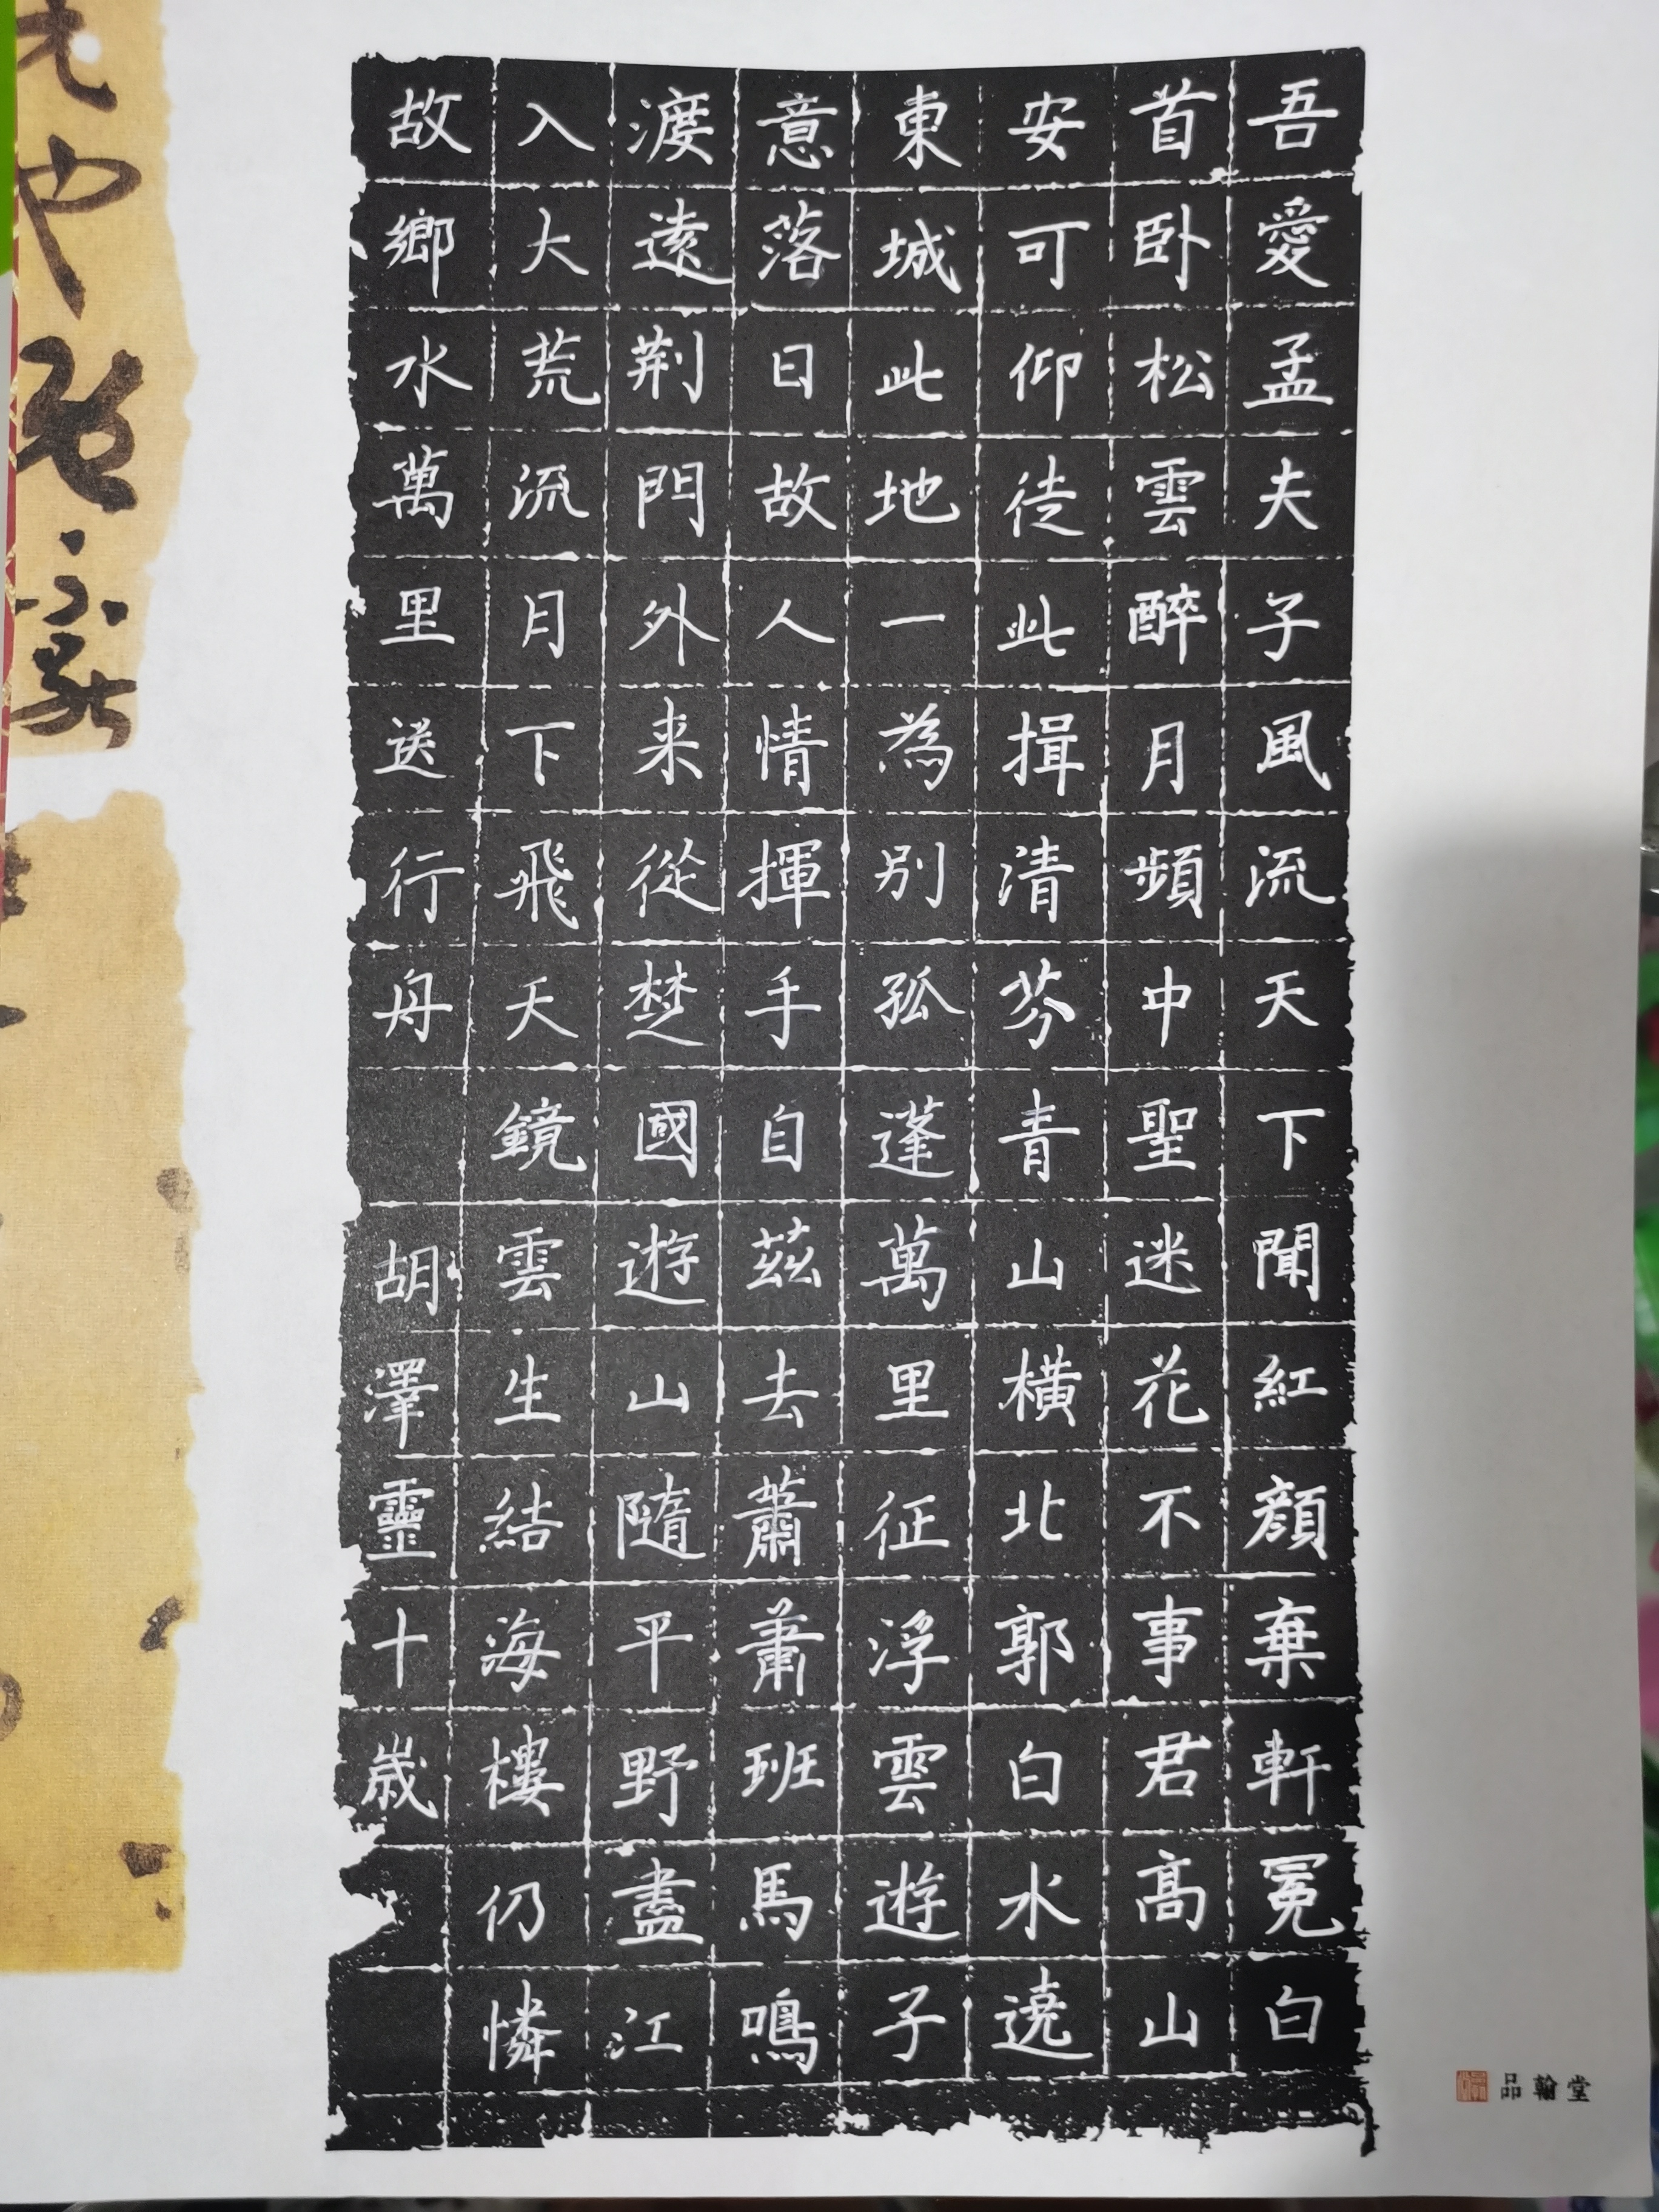 吾愛孟夫子風流天下聞紅顔棄軒冕白
首卧松雲醉月頻中聖迷花不事君高山
安可仰徒此揖清芬青山横北郭白水遶
東城此地一為別孤蓬萬里征浮雲遊子
意落日故人情揮手自茲去蕭蕭班馬鳴
渡遠荆門外来從楚國遊山隨平野盡江
入大荒流月下飛天鏡雲生結海樓仍憐
故鄉水萬里送行舟 胡澤靈十歲
品翰堂
也
家